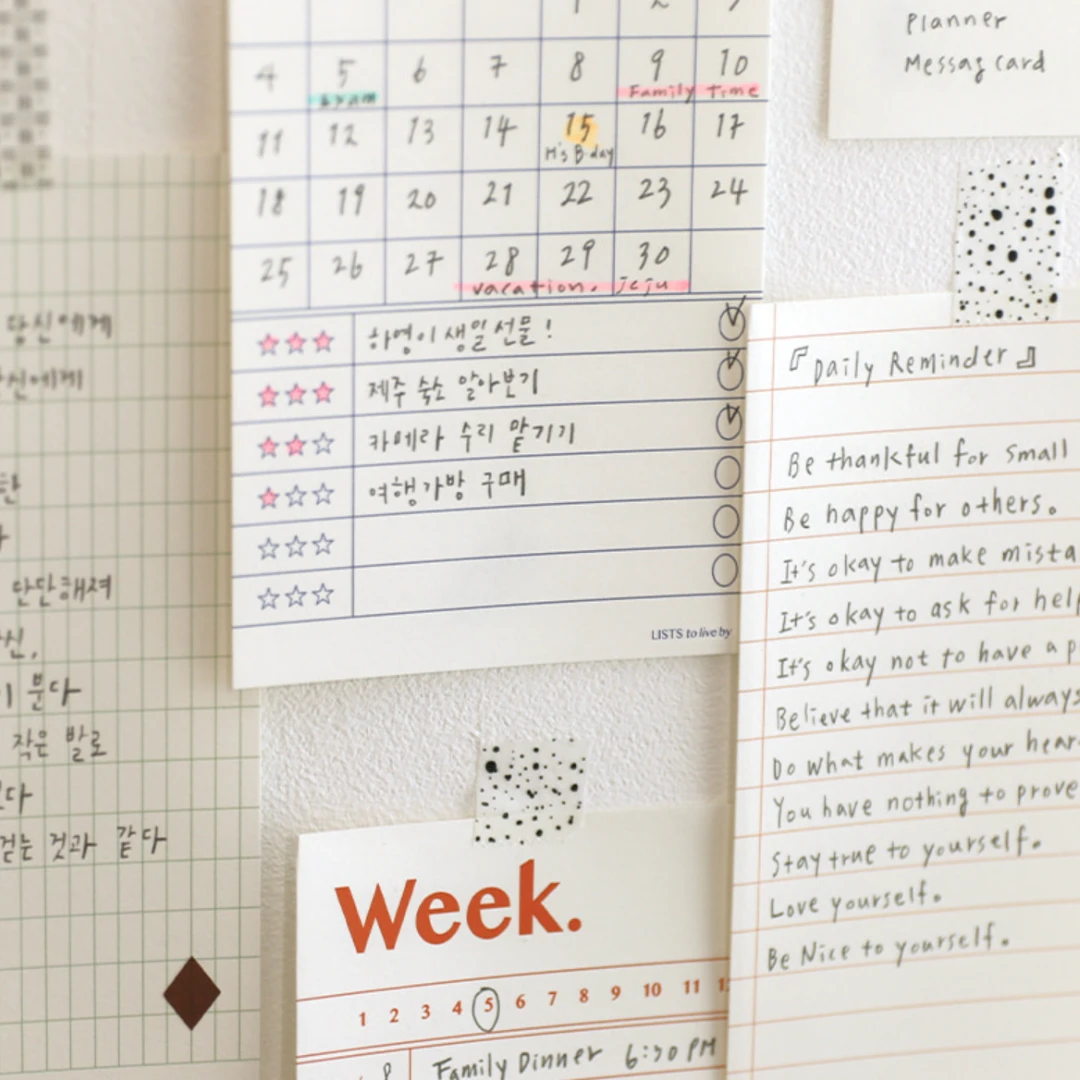 4 5 6 7 8 9 10
exam
Family Time
11 12 13 14 15 16 17
M's B-day
18 19 20 21 22 23 24
25 26 27 28 29 30
vacation. jeju
하영이 생일선물!
제주 숙소 알아보기
카메라 수리 맡기기
여행가방 구매
LISTS to live by
Planner
Messag card
『Daily Reminder』
Be thankful for small
Be happy for others.
It's okay to make mista
It's okay to ask for help
It's okay not to have a p
Believe that it will always
Do what makes your hear
You have nothing to prove
Stay true to yourself.
Love yourself.
Be Nice to yourself.
당신에게
단단해져
분다
작은 발로
걷는 것과 같다
Week.
1 2 3 4 5 6 7 8 9 10 11
Family Dinner 6:30 PM